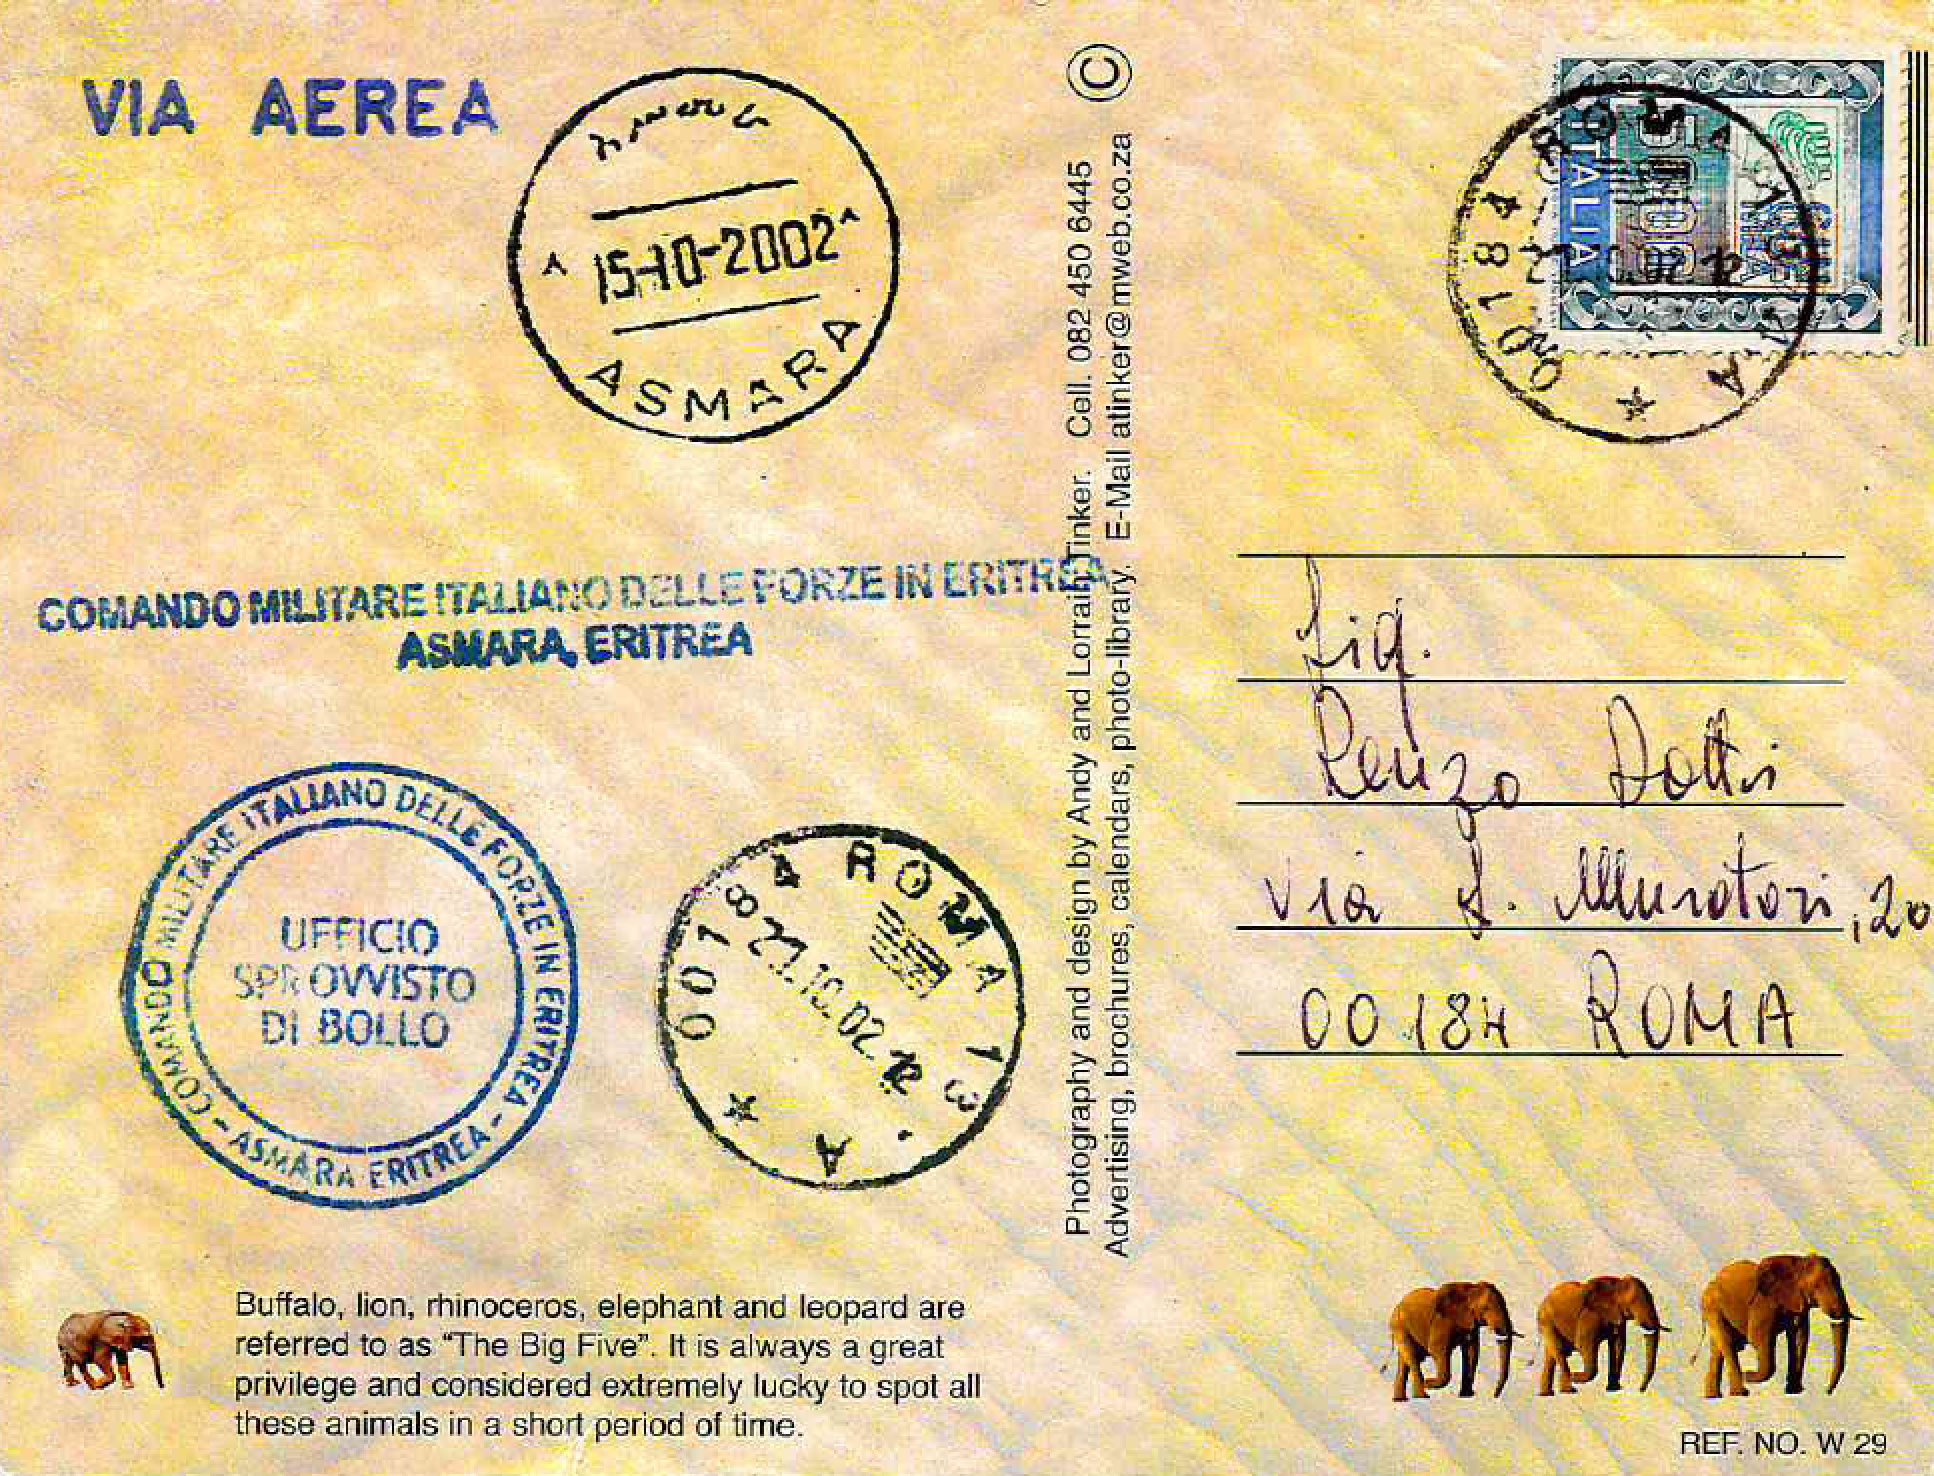 VIA AEREA
15-10-2002
ASMARA
COMANDO MILITARE ITALIANO DELLE FORZE IN ERITREA
ASMARA, ERITREA
COMANDO MILITARE ITALIANO DELLE FORZE IN ERITREA - ASMARA ERITREA -
UFFICIO
SPROVVISTO
DI BOLLO
00184 ROMA 13
27.10.02.12
A
Buffalo, lion, rhinoceros, elephant and leopard are
referred to as “The Big Five”. It is always a great
privilege and considered extremely lucky to spot all
these animals in a short period of time.
©
Photography and design by Andy and Lorrain Tinker. Cell. 082 450 6445
Advertising, brochures, calendars, photo-library. E-Mail atinker@mweb.co.za
ITALIA
00184 ROMA
A
Sig.
Renzo Dotti
Via L. Muratori, 20
00184 ROMA
REF. NO. W 29